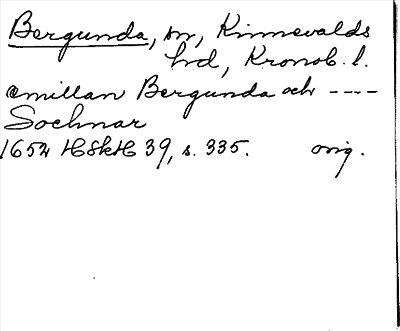 Bergunda, sn, Kinnevalds
hd, Kronob. l.
emillan Bergunda och ----
Sochnar
1654 HSkH 39, s. 335. orig.